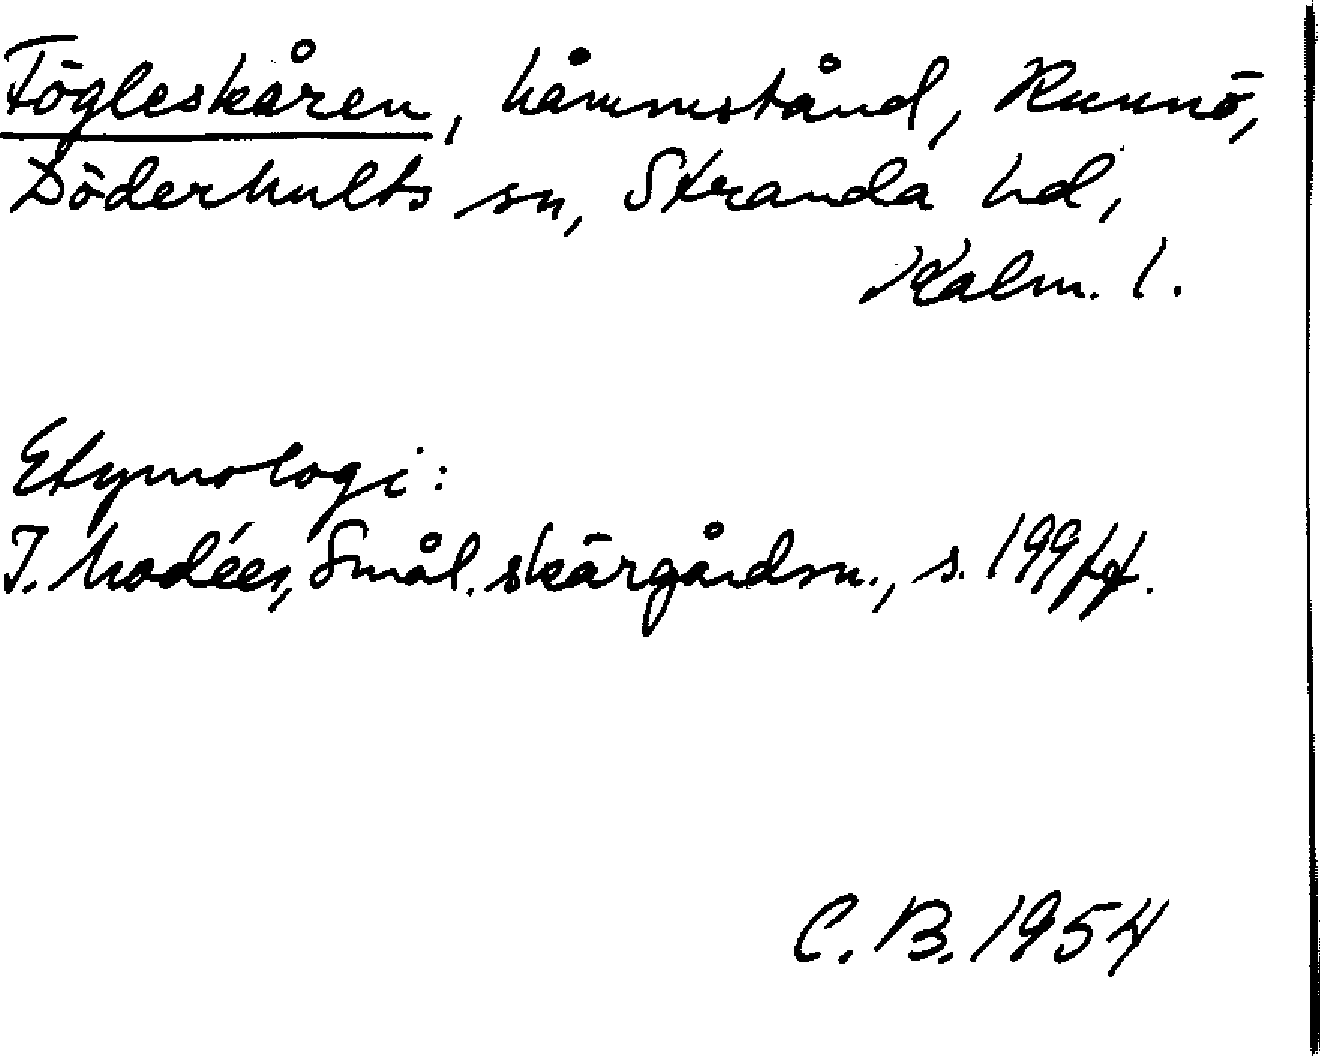 Fögleskåren, håmmstånd, Runnö,
Döderhults sn, Stranda hd,
Kalm. l.
Etymologi:
I. Modéer, Smål. skärgårdsn., s. 199 ff.
C. B. 1954